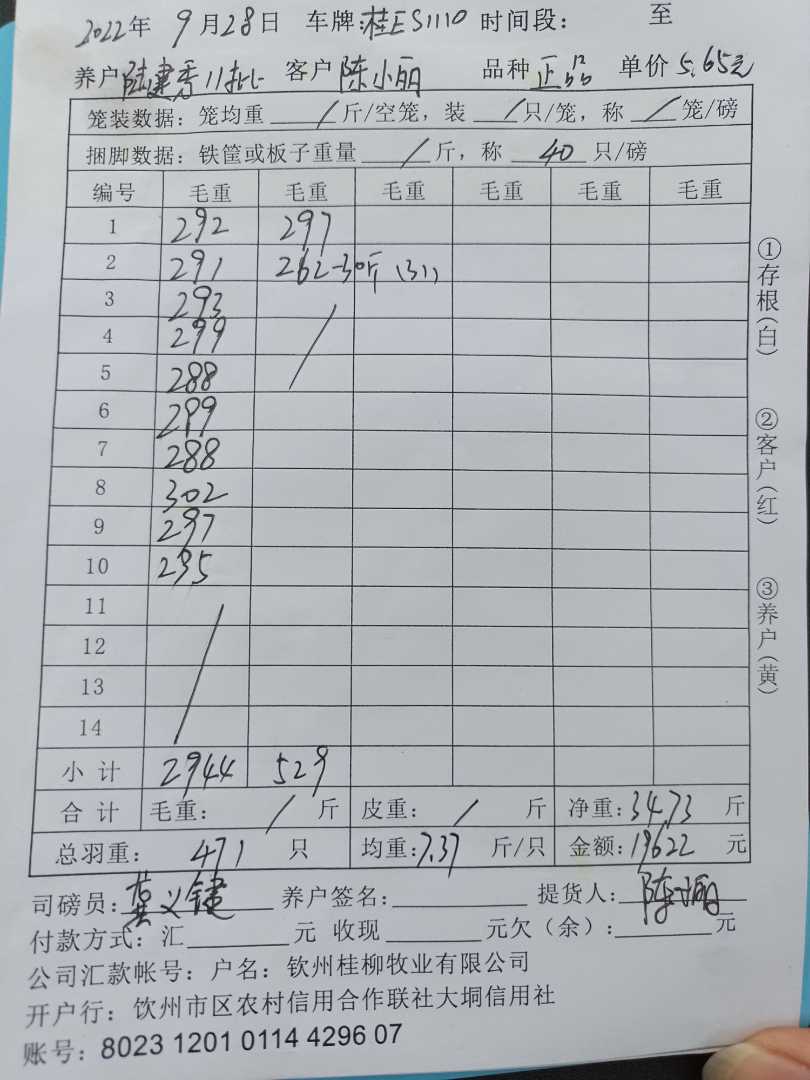 2022年 9月28日 车牌:桂ES1110 时间段: 至
养户 陆建秀11批 客户 陈小丽 品种 正品 单价 5.65元
笼装数据: 笼均重 / 斤/空笼, 装 / 只/笼, 称 / 笼/磅
捆脚数据: 铁筐或板子重量 / 斤, 称 40 只/磅
编号 毛重 毛重 毛重 毛重 毛重 毛重
1 292 297
2 291 262-30斤 (31)
3 293
4 299
5 288
6 299
7 288
8 302
9 297
10 295
11
12
13
14
小计 2944 529
合计 毛重: / 斤 皮重: / 斤 净重:3473 斤
总羽重: 471 只 均重:7.37 斤/只 金额:19622 元
司磅员: 黄义键 养户签名: 提货人: 陈小丽
付款方式: 汇 元 收现 元欠(余): 元
公司汇款帐号: 户名: 钦州桂柳牧业有限公司
开户行: 钦州市区农村信用合作联社大垌信用社
账号: 8023 1201 0114 4296 07
①存根(白)
②客户(红)
③养户(黄)